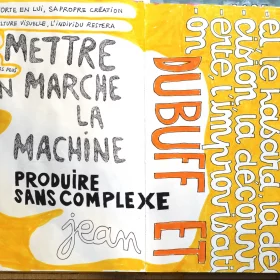 ORTE EN LUI, SA PROPRE CRÉATION
LTURE VISUELLE, L'INDIVIDU RESTERA
METTRE
N MARCHE
LA
MACHINE
PRODUIRE
SANS COMPLEXE
jean
DUBUFF ET
et le hasard, la dé
cision, la découv
erte, l'improvisati
on